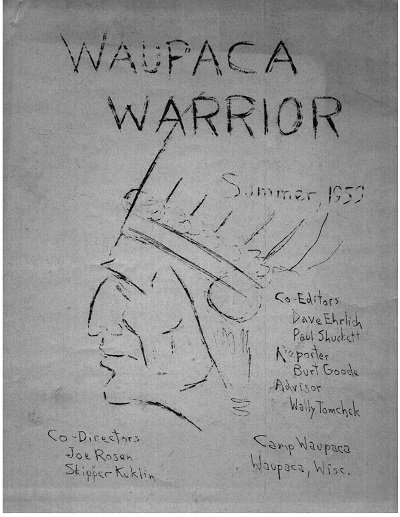 WAUPACA
WARRIOR
Summer, 1959
Co-Editors
Dave Ehrlich
Paul Shuckett
Reporter
Burt Goode
Advisor
Wally Tomchek
Co-Directors
Joe Rosen
Skipper Kuklin
Camp Waupaca
Waupaca, Wisc.